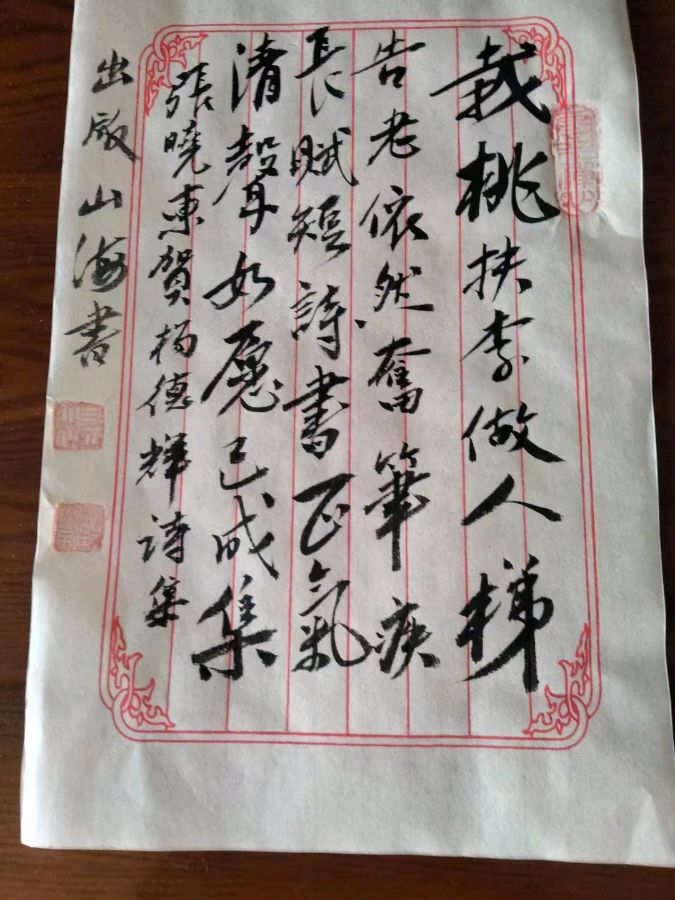 栽桃扶李做人梯
告老依然奮筆疾
長賦短詩書正氣
清聲如愿已成集
張曉東賀楊德輝詩集
出版山海書